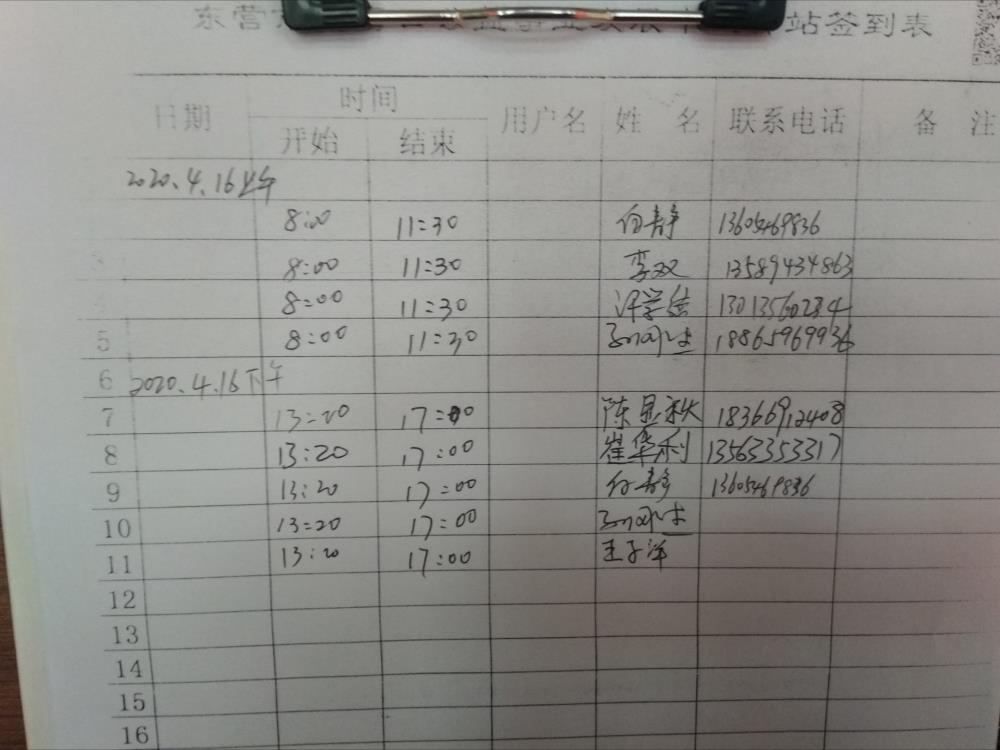 东营
站签到表
日期 时间 用户名 姓 名 联系电话 备 注
开始 结束
2020.4.16上午
8:00 11:30 白静 13605469836
3 8:00 11:30 李双 13589434863
4 8:00 11:30 许学 13013560284
5 8:00 11:30 18865969936
6 2020.4.16下午
7 13:20 17:00 陈显秋 18366912408
8 13:20 17:00 崔华利 13563353317
9 13:20 17:00 白静 13605469836
10 13:20 17:00
11 13:20 17:00 王子洋
12
13
14
15
16